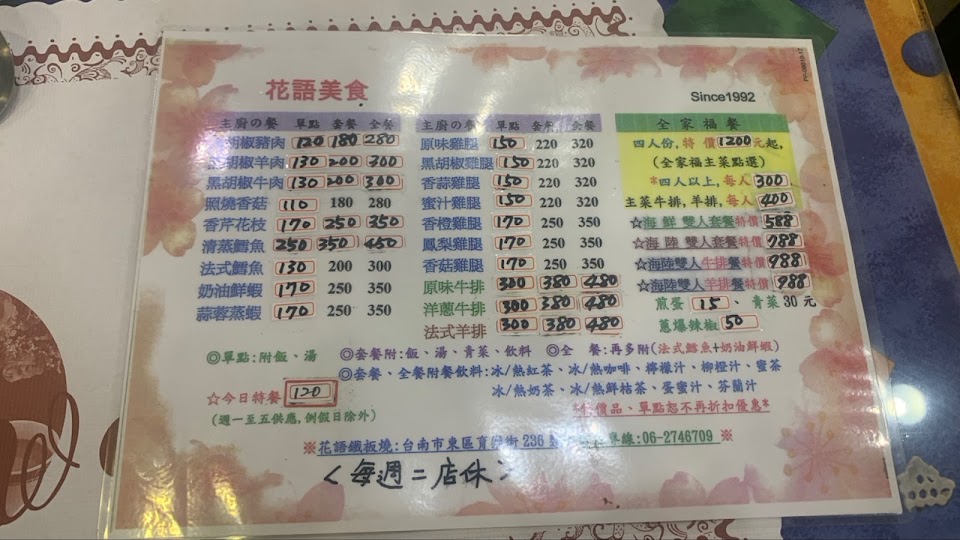 花語美食
Since1992
主廚の餐 單點 套餐 全餐
胡椒豬肉 120 180 280
胡椒羊肉 130 200 300
黑胡椒牛肉 130 200 300
照燒香菇 110 180 280
香芹花枝 170 250 350
清蒸鱈魚 250 350 450
法式鱈魚 130 200 300
奶油鮮蝦 170 250 350
蒜蓉蒸蝦 170 250 350
主廚の餐 單點 套餐 全餐
原味雞腿 150 220 320
黑胡椒雞腿 150 220 320
香蒜雞腿 150 220 320
蜜汁雞腿 150 220 320
香橙雞腿 170 250 350
鳳梨雞腿 170 250 350
香菇雞腿 170 250 350
原味牛排 300 380 480
洋蔥牛排 300 380 480
法式羊排 300 380 480
全家福餐
四人份,特價1200元起,
(全家福主菜點選)
*四人以上,每人300
主菜牛排,羊排,每人400
☆海鮮雙人套餐特價588
☆海陸雙人套餐特價788
☆海陸雙人牛排餐特價988
☆海陸雙人羊排餐特價988
煎蛋15、青菜30元
蔥爆辣椒50
◎單點:附飯、湯 ◎套餐附:飯、湯、青菜、飲料 ◎全 餐:再多附(法式鱈魚+奶油鮮蝦)
◎套餐、全餐附餐飲料:冰/熱紅茶、冰/熱咖啡、檸檬汁、柳橙汁、蜜茶
冰/熱奶茶、冰/熱鮮桔茶、蛋蜜汁、芬蘭汁
☆今日特餐 120
(週一至五供應,例假日除外)
價品、單點恕不再折扣優惠*
※花語鐵板燒:台南市東區育 街236 專線:06-2746709 ※
<每週二店休>